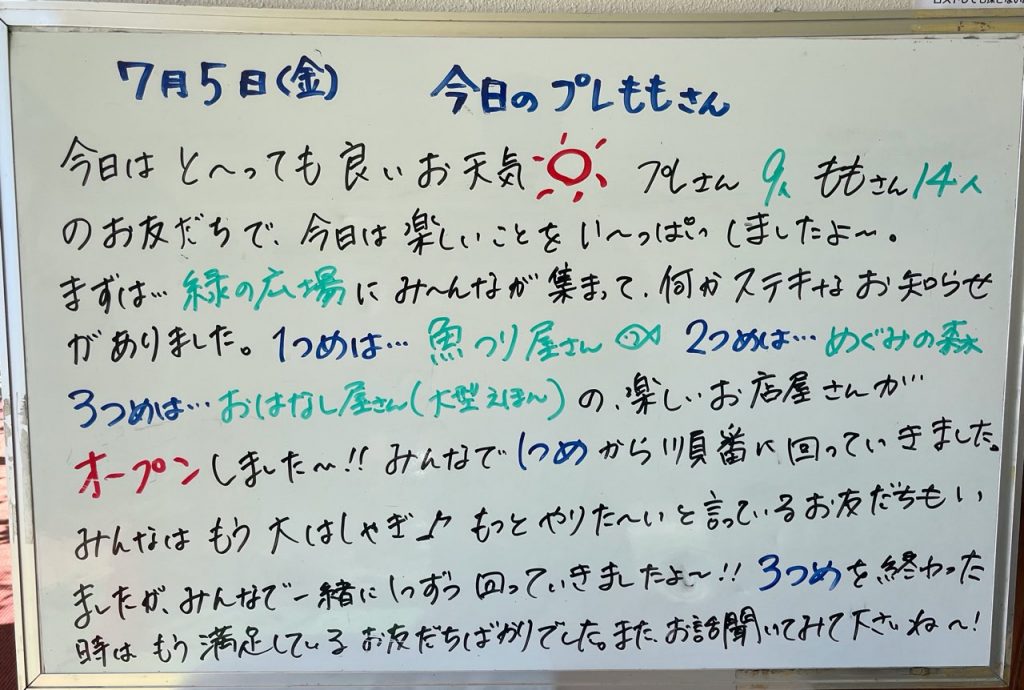 7月5日(金) 今日のプレももさん
今日は と～っても 良い お 天気 プレさん 9人 ももさん 14人
のお友だちで、今日は 楽しいことを い～っぱいっ しましたよ～。
まずは… 緑の広場に み～んなが 集まって、何かステキなお知らせ
がありました。1つめは… 魚つり屋さん 2つめは… めぐみの森
3つめは… おはなし屋さん(大型えほん) の、楽しいお店屋さんが
オープンしました～!! みんなで 1つめから 順番に 回っていきました。
みんなは もう 大はしゃぎ♪ もっと やりた～い と言っているお友だちもい
ましたが、みんなで 一緒に 1つずつ 回っていきましたよ～!! 3つめを 終わった
時は もう 満足している お友だちばかりでした。また、お話聞いてみて下さいね～!